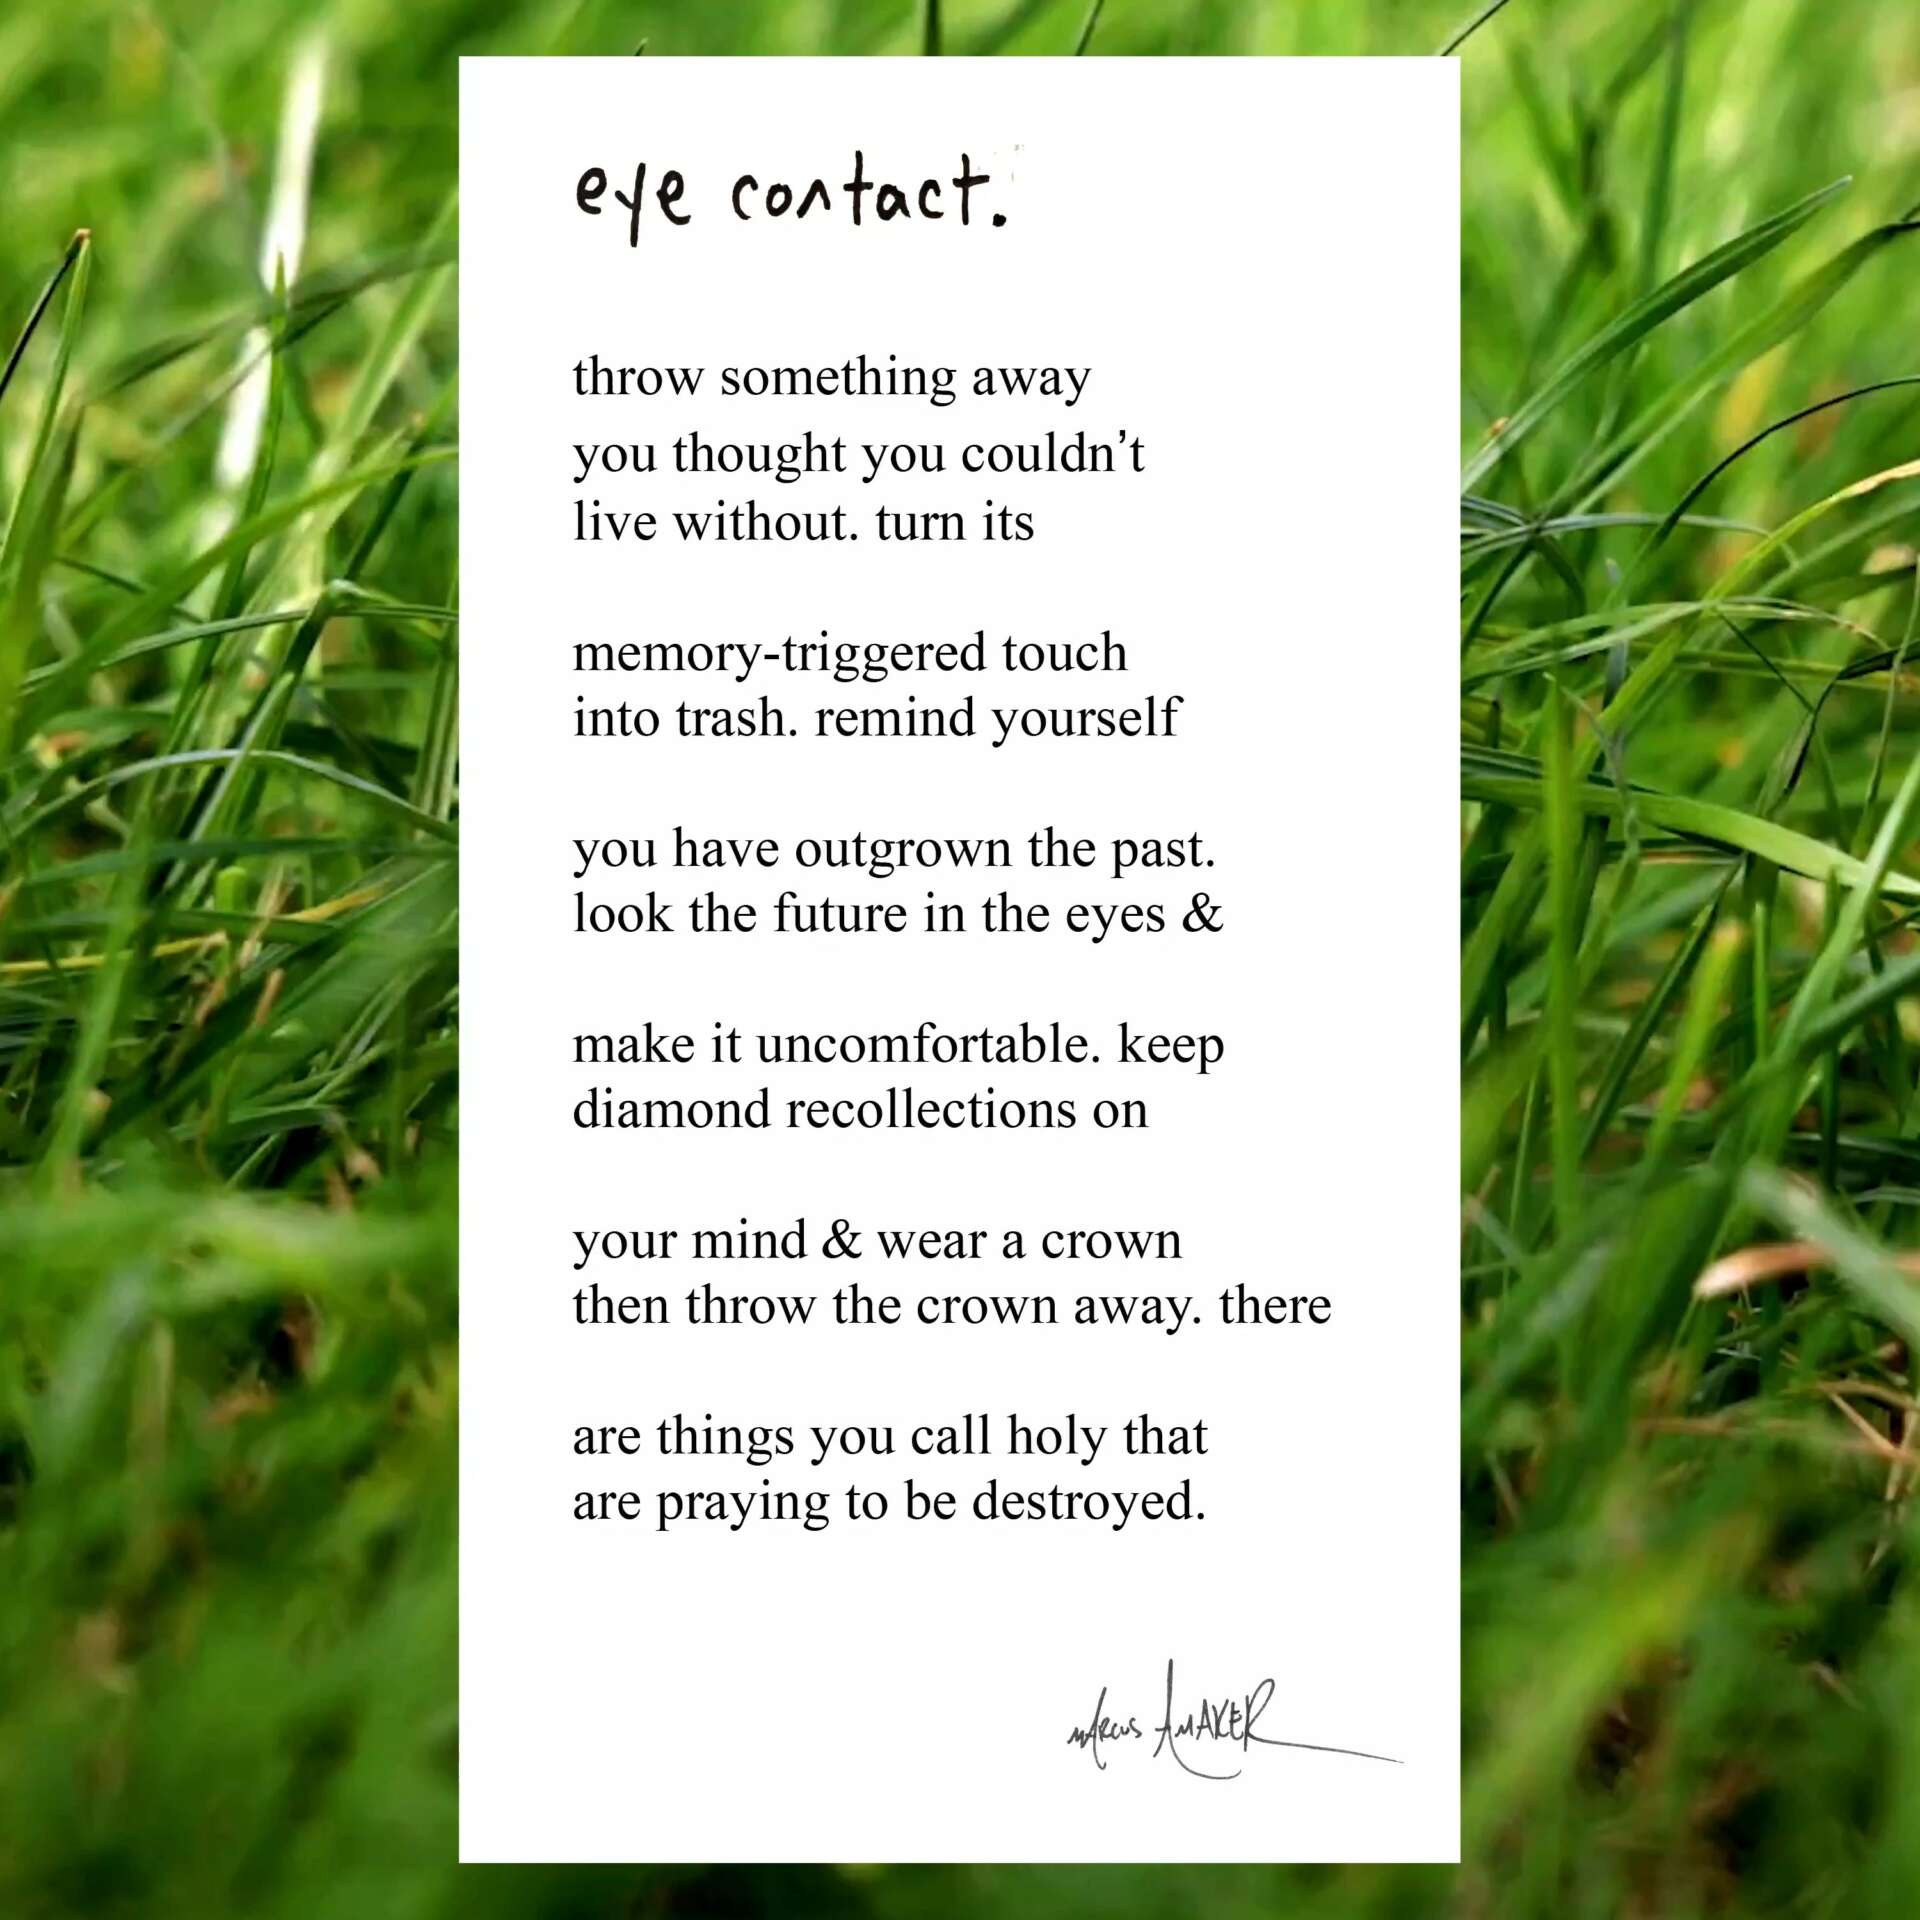 eye contact.
throw something away
you thought you couldn’t
live without. turn its
memory-triggered touch
into trash. remind yourself
you have outgrown the past.
look the future in the eyes &
make it uncomfortable. keep
diamond recollections on
your mind & wear a crown
then throw the crown away. there
are things you call holy that
are praying to be destroyed.
MARCUS AMAKER